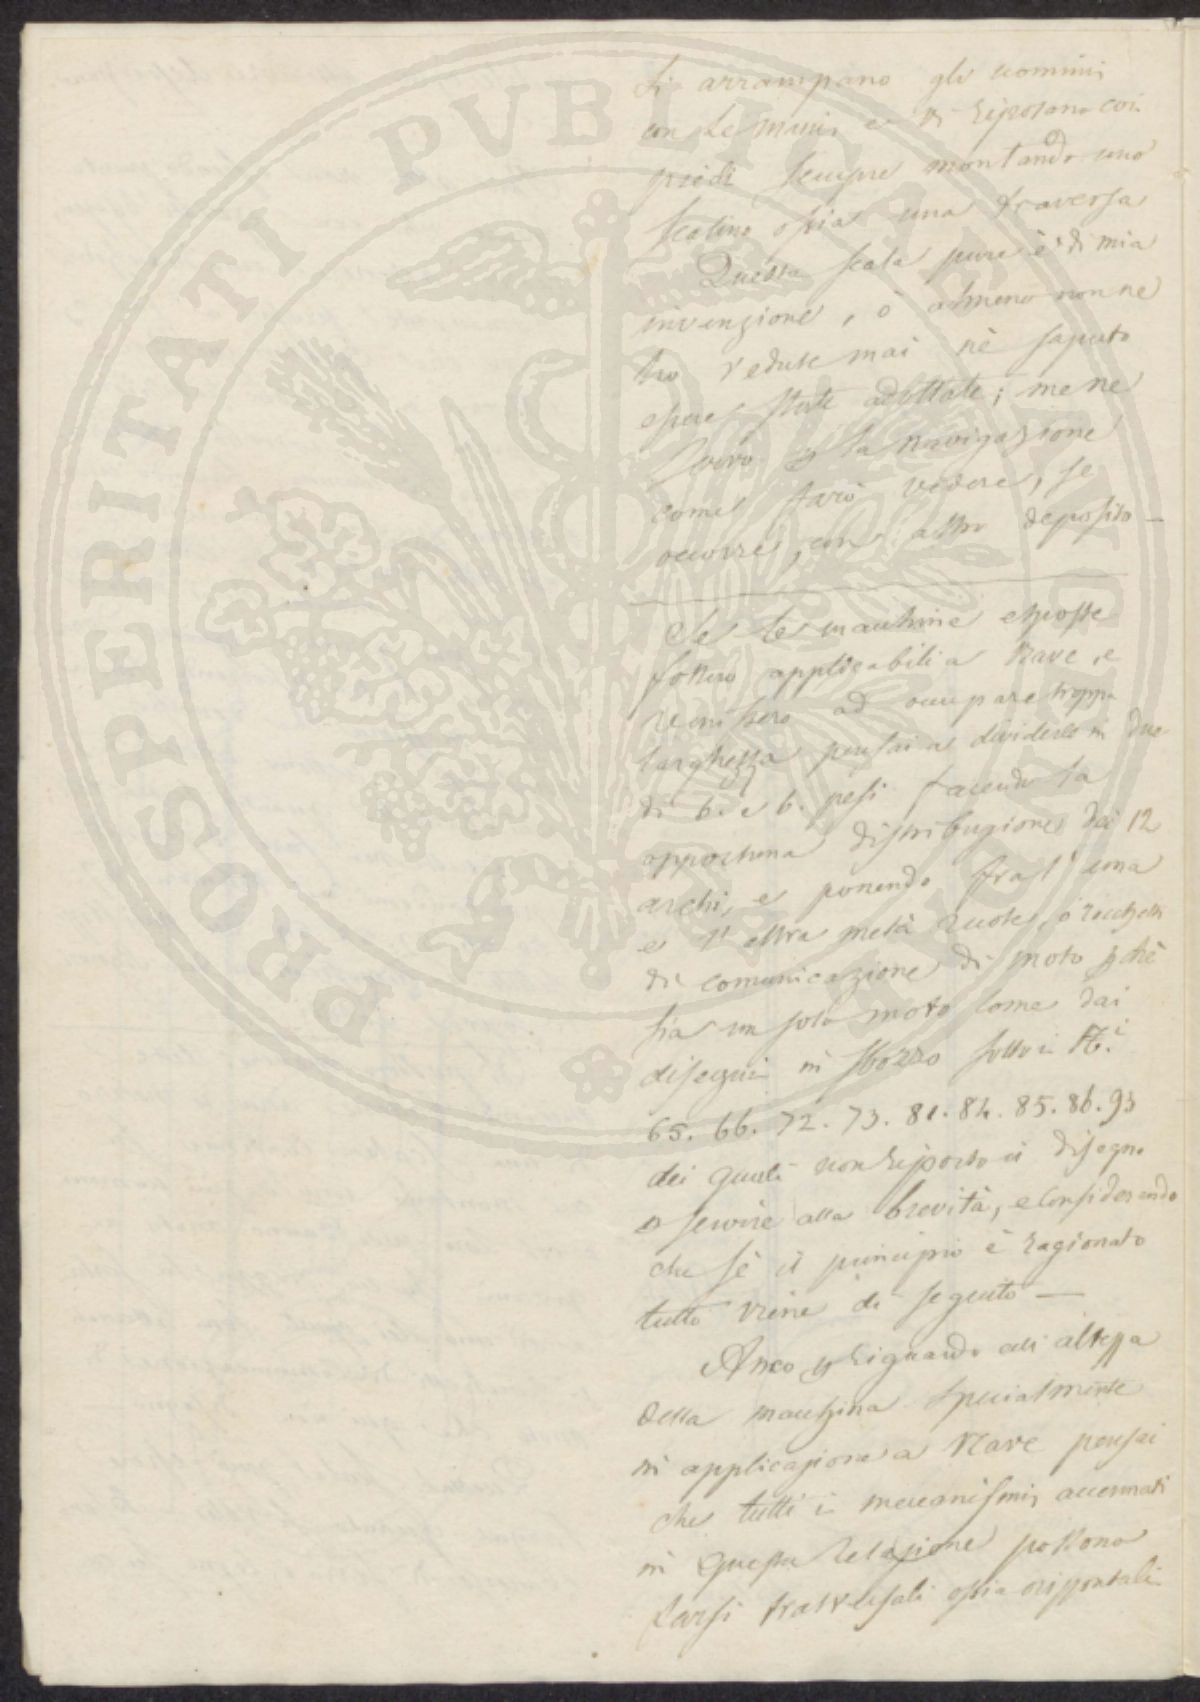 Si arrampano gli uomini
con le mani, e vi riposano coi
piedi sempre montando uno
scalino ossia una traversa
Questa scala pure è di mia
invenzione, ò almeno non ne
ho vedute mai nè saputo
essere state adottate; me ne
servo la navigazione
come farò vedere, se
occorre, con altro deposito —
Se le machine esposte
fossero applicabili a Nave, e
venissero ad occupare troppa
larghezza pensai a dividerle in due
di 6. e 6. pesi facendo la
opportuna distribuzione dei 12
archi, e ponendo fra l'una
e l'altra metà ruote, ò rocchetti
di comunicazione di moto pchè
sia un solo moto come dai
disegni in sbozzo sotto i N.i
65. 66. 72. 73. 81. 82. 85. 86. 93
dei quali non riporto il disegno
p servire alla brevità, e considerando
che sè il principio è ragionato
tutto viene di seguito —
Anco p riguardo all' altezza
della machina specialmente
in applicazione a Nave pensai
che tutti i mecanismi, accennati
in questa relazione possono
farsi trasversali ossia orizzontali
PROSPERITATI PUBLICAE